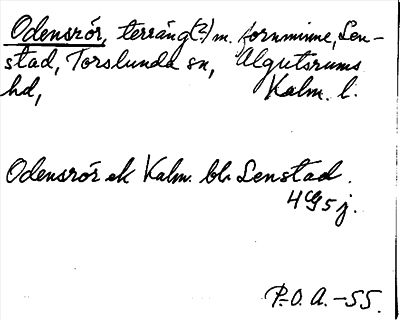 Odensrör, terräng(?) m. fornminne, Len-
stad, Torslunda sn, Algutsrums
hd, Kalm. l.
Odensrör ek Kalm. bl. Lenstad.
4G5j.
P.O.A. -55.